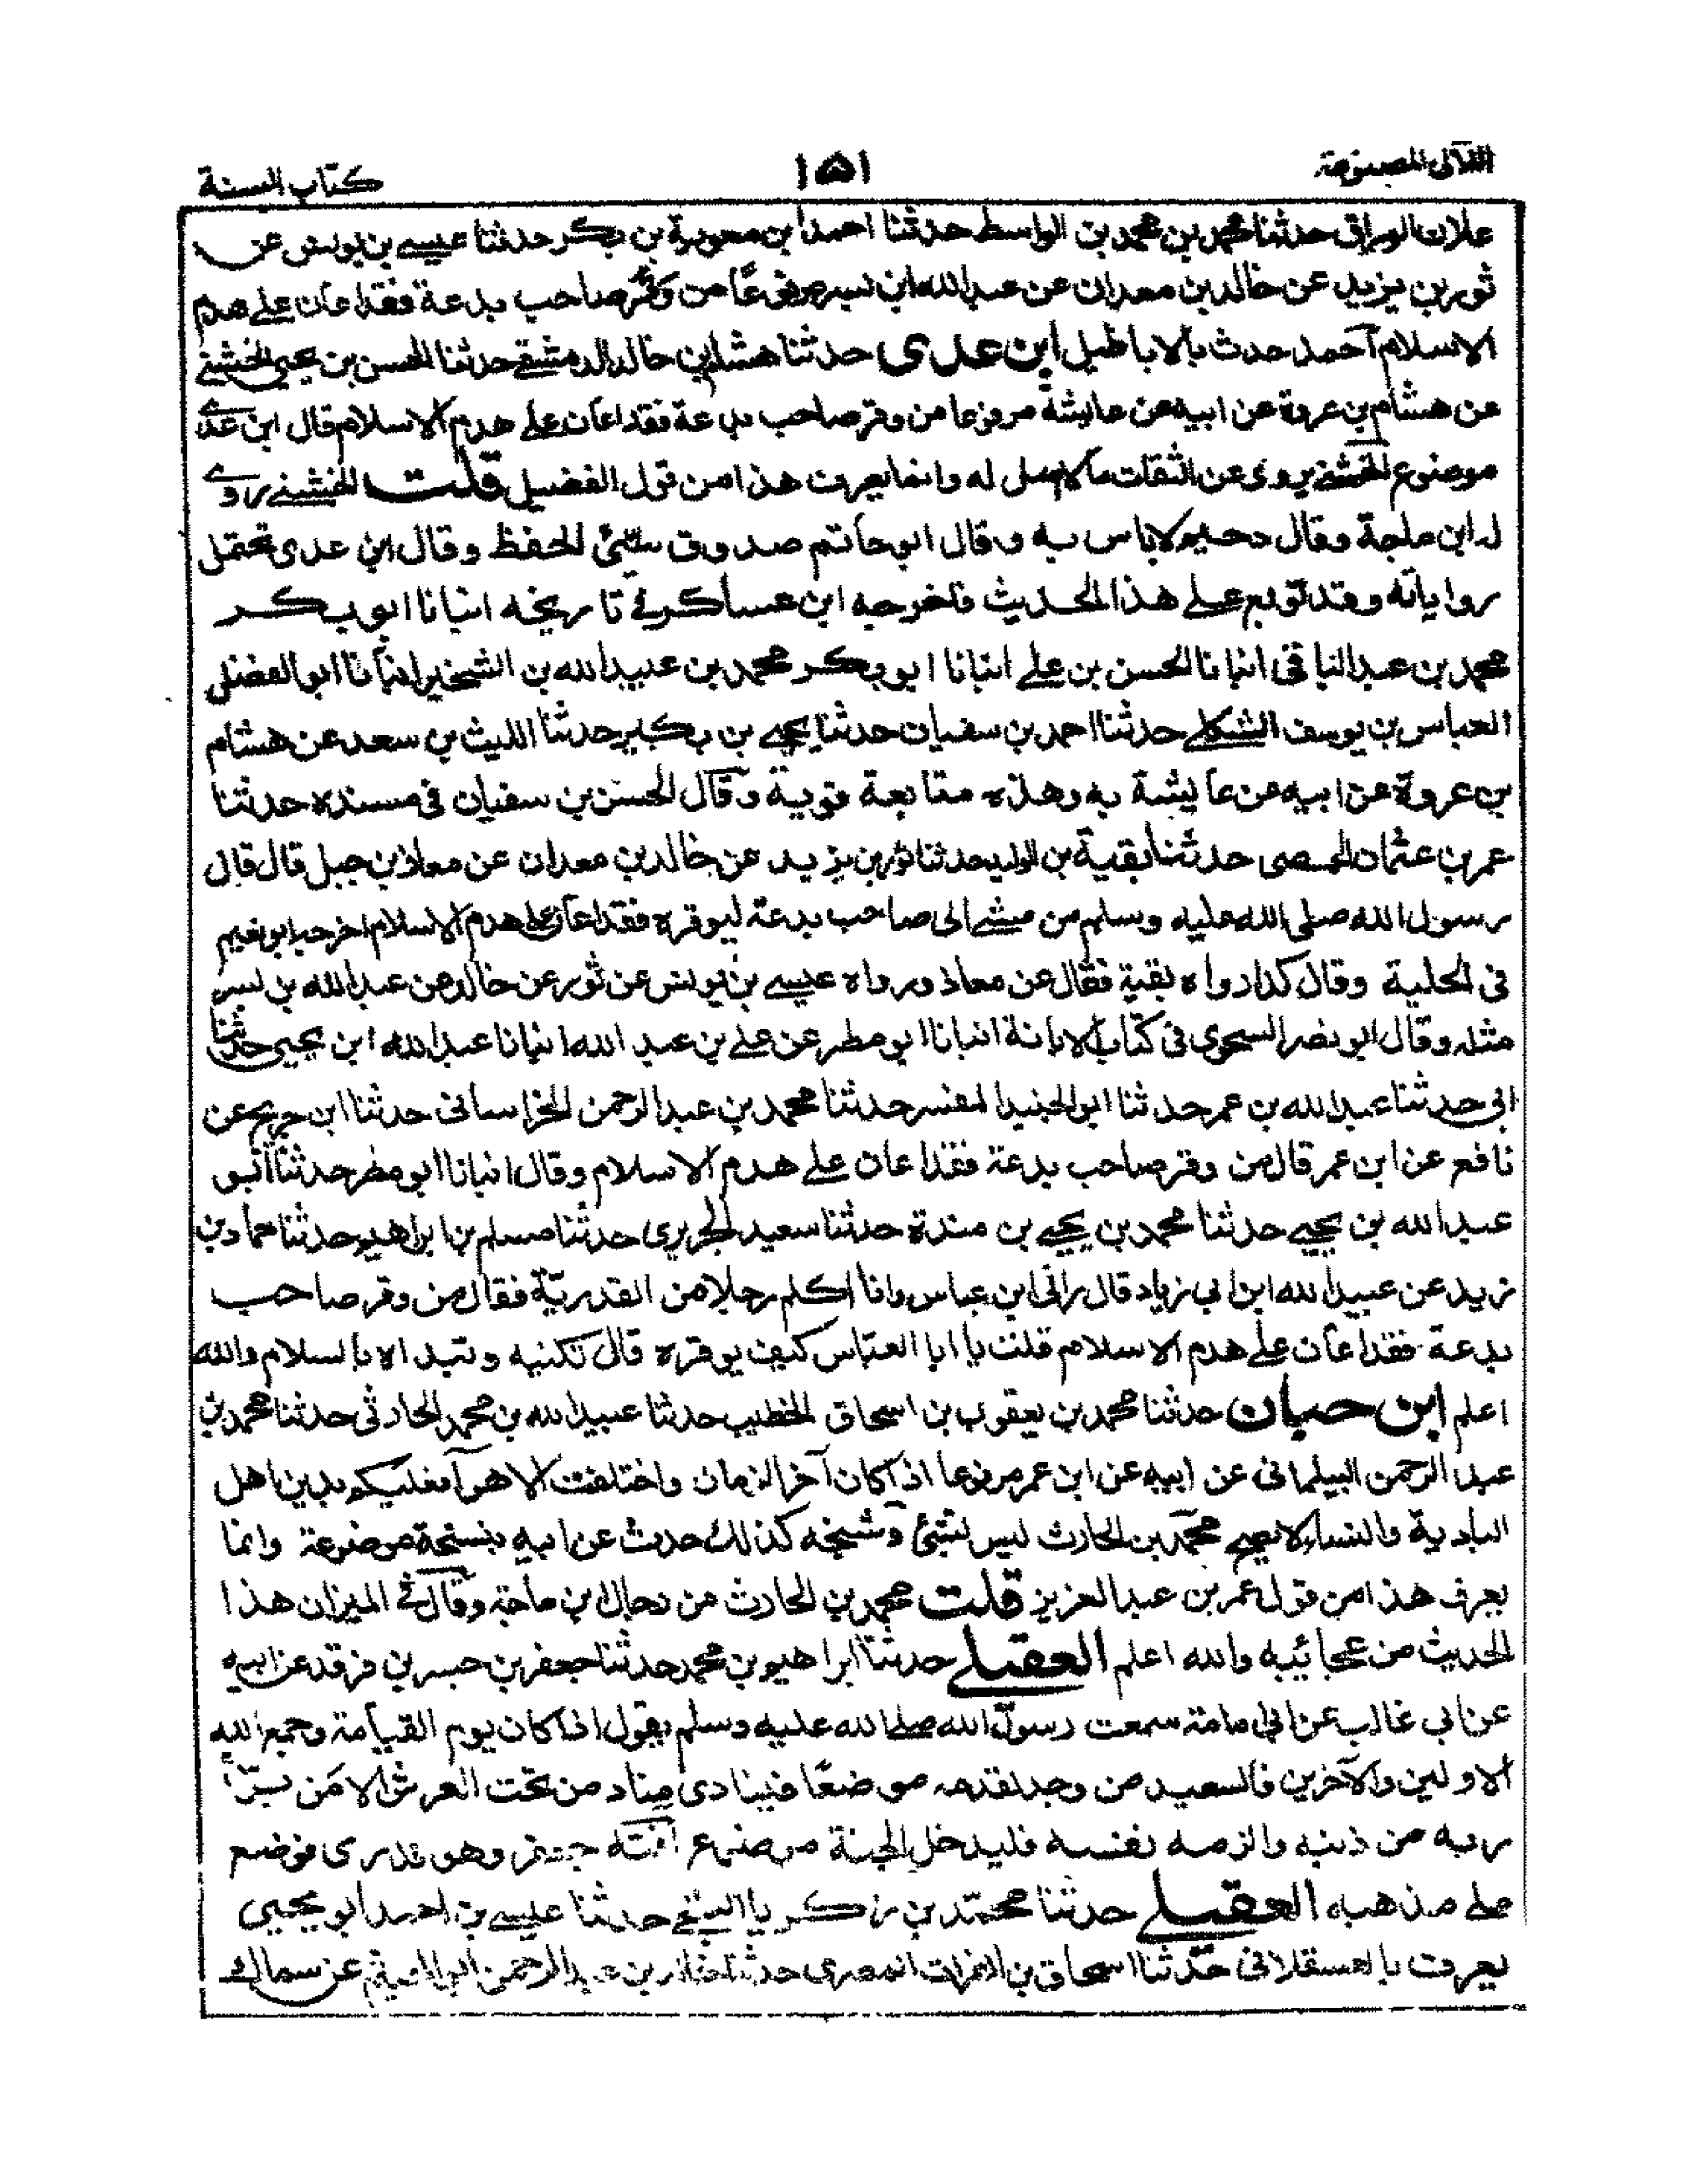 اللآلی المصنوعة
١٥١
کتاب السنة
علان الوراق حدثنا محمد بن محمد بن الواسطے حدثنا احمد ابن معویة بن بکر حدثنا عیسے بن یونس عن
ثور بن یزید عن خالد بن معدان عن عبد الله ابن بسر مرفوعًا من وقر صاحب بدعة فقد اعان علے هدم
الاسلام احمد حدث بالاباطیل ابن عدی حدثنا هشام بن خالد الدمشقے حدثنا الحسن بن یحیی الخشنے
عن هشام بن عروة عن ابیه عن عایشة مرفوعا من وقر صاحب بدعة فقد اعان علے هدم الاسلام قال ابن عدے
موضوع الخشنے یروی عن الثقات ما لا اصل له وانما یعرف هذا من قول الفضیل قلت الخشنے روے
له ابن ماجة وقال دحیم لاباس به وقال ابو حاتم صدوق سیئ الحفظ وقال ابن عدی تحتمل
روایاته وقد توبع علے هذا الحدیث فاخرجه ابن عساکر فے تاریخه انبانا ابو بکر
محمد بن عبد الباقی انبانا الحسن بن علے انبانا ابو بکر محمد بن عبید الله بن الشخیر انبانا ابو الفضل
العباس بن یوسف الشکلے حدثنا احمد بن سفیان حدثنا یحیے بن بکیر حدثنا اللیث بن سعد عن هشام
بن عروة عن ابیه عن عایشة به وهذه متابعة قویة وقال الحسن بن سفیان فی مسنده حدثنا
عمر بن عثمان الحمصی حدثنا بقیة بن الولید حدثنا ثور بن یزید عن خالد بن معدان عن معاذ بن جبل قال قال
رسول الله صلی الله علیه وسلم من مشے الی صاحب بدعة لیوقره فقد اعان علی هدم الاسلام اخرجه ابو نعیم
فی الحلیة وقال کذا رواه بقیة فقال عن معاذ ورواه عیسے بن یونس عن ثور عن خالد عن عبد الله بن بسر
مثله وقال ابو نصر السجزی فی کتاب الابانة انبانا ابو مطر عن علے بن عبد الله انبانا عبد الله ابن یحیی حدثنا
ابی حدثنا عبد الله بن عمر حدثنا ابو الجنید المفسر حدثنا محمد بن عبد الرحمن الخراسانی حدثنا ابن جریج عن
نافع عن ابن عمر قال من وقر صاحب بدعة فقد اعان علے هدم الاسلام وقال انبانا ابو مطر حدثنا ابو
عبد الله بن یحیے حدثنا محمد بن یحیے بن مندة حدثنا سعید الجریری حدثنا مسلم بن ابراهیم حدثنا حماد بن
زید عن عبید الله ابن ابی زیاد قال رانی ابن عباس وانا اکلم رجلا من القدریة فقال من وقر صاحب
بدعة فقد اعان علے هدم الاسلام قلت یا ابا العباس کیف یوقره قال تکنیه وتبداه بالسلام والله
اعلم ابن حبان حدثنا محمد بن یعقوب بن اسحاق الخطیب حدثنا عبید الله بن محمد الحارثی حدثنا محمد بن
عبد الرحمن البیلمانی عن ابیه عن ابن عمر مرفوعا اذا کان آخر الزمان واختلفت الاهوآ فعلیکم بدین اهل
البادیة والنساء لا یصح محمد بن الحارث لیس بشئ وشیخه کذلك حدث عن ابیه بنسخة موضوعة وانما
یعرف هذا من قول عمر بن عبد العزیز قلت محمد بن الحارث من رجال بن ماجة وقال فے المیزان هذا
الحدیث من عجائبه والله اعلم العقیلے حدثنا ابراهیم بن محمد حدثنا جعفر بن جسر بن فرقد عن ابیه
عن ابی غالب عن ابی امامة سمعت رسول الله صلے الله علیه وسلم یقول اذا کان یوم القیامة وجمع الله
الاولین والآخرین فالسعید من وجد لقدمه موضعًا فینادی مناد من تحت العرش الا من برّأ
ربه من ذنبه والزمه نفسه فلیدخل الجنة موضوع آفته جعفر وهو قدری فوضع
علے مذهبه العقیلے حدثنا محمد بن زکریا البلخے حدثنا عیسے بن احمد ابو یحیی
یعرف بالعسقلانی حدثنا اسحاق بن الفرات المصری حدثنا خالد بن عبد الرحمن ابو الهیثم عن سماك